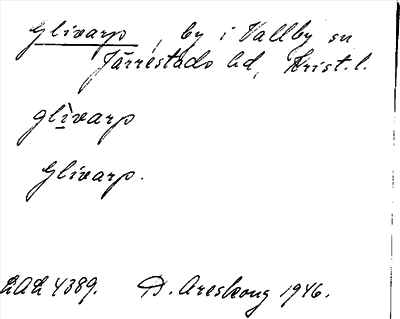 Glivarp, by i Vallby sn
Järrestads hd, Krist. l.
glìvarp
Glivarp.
LAL 4389. D. Areskoug 1946.